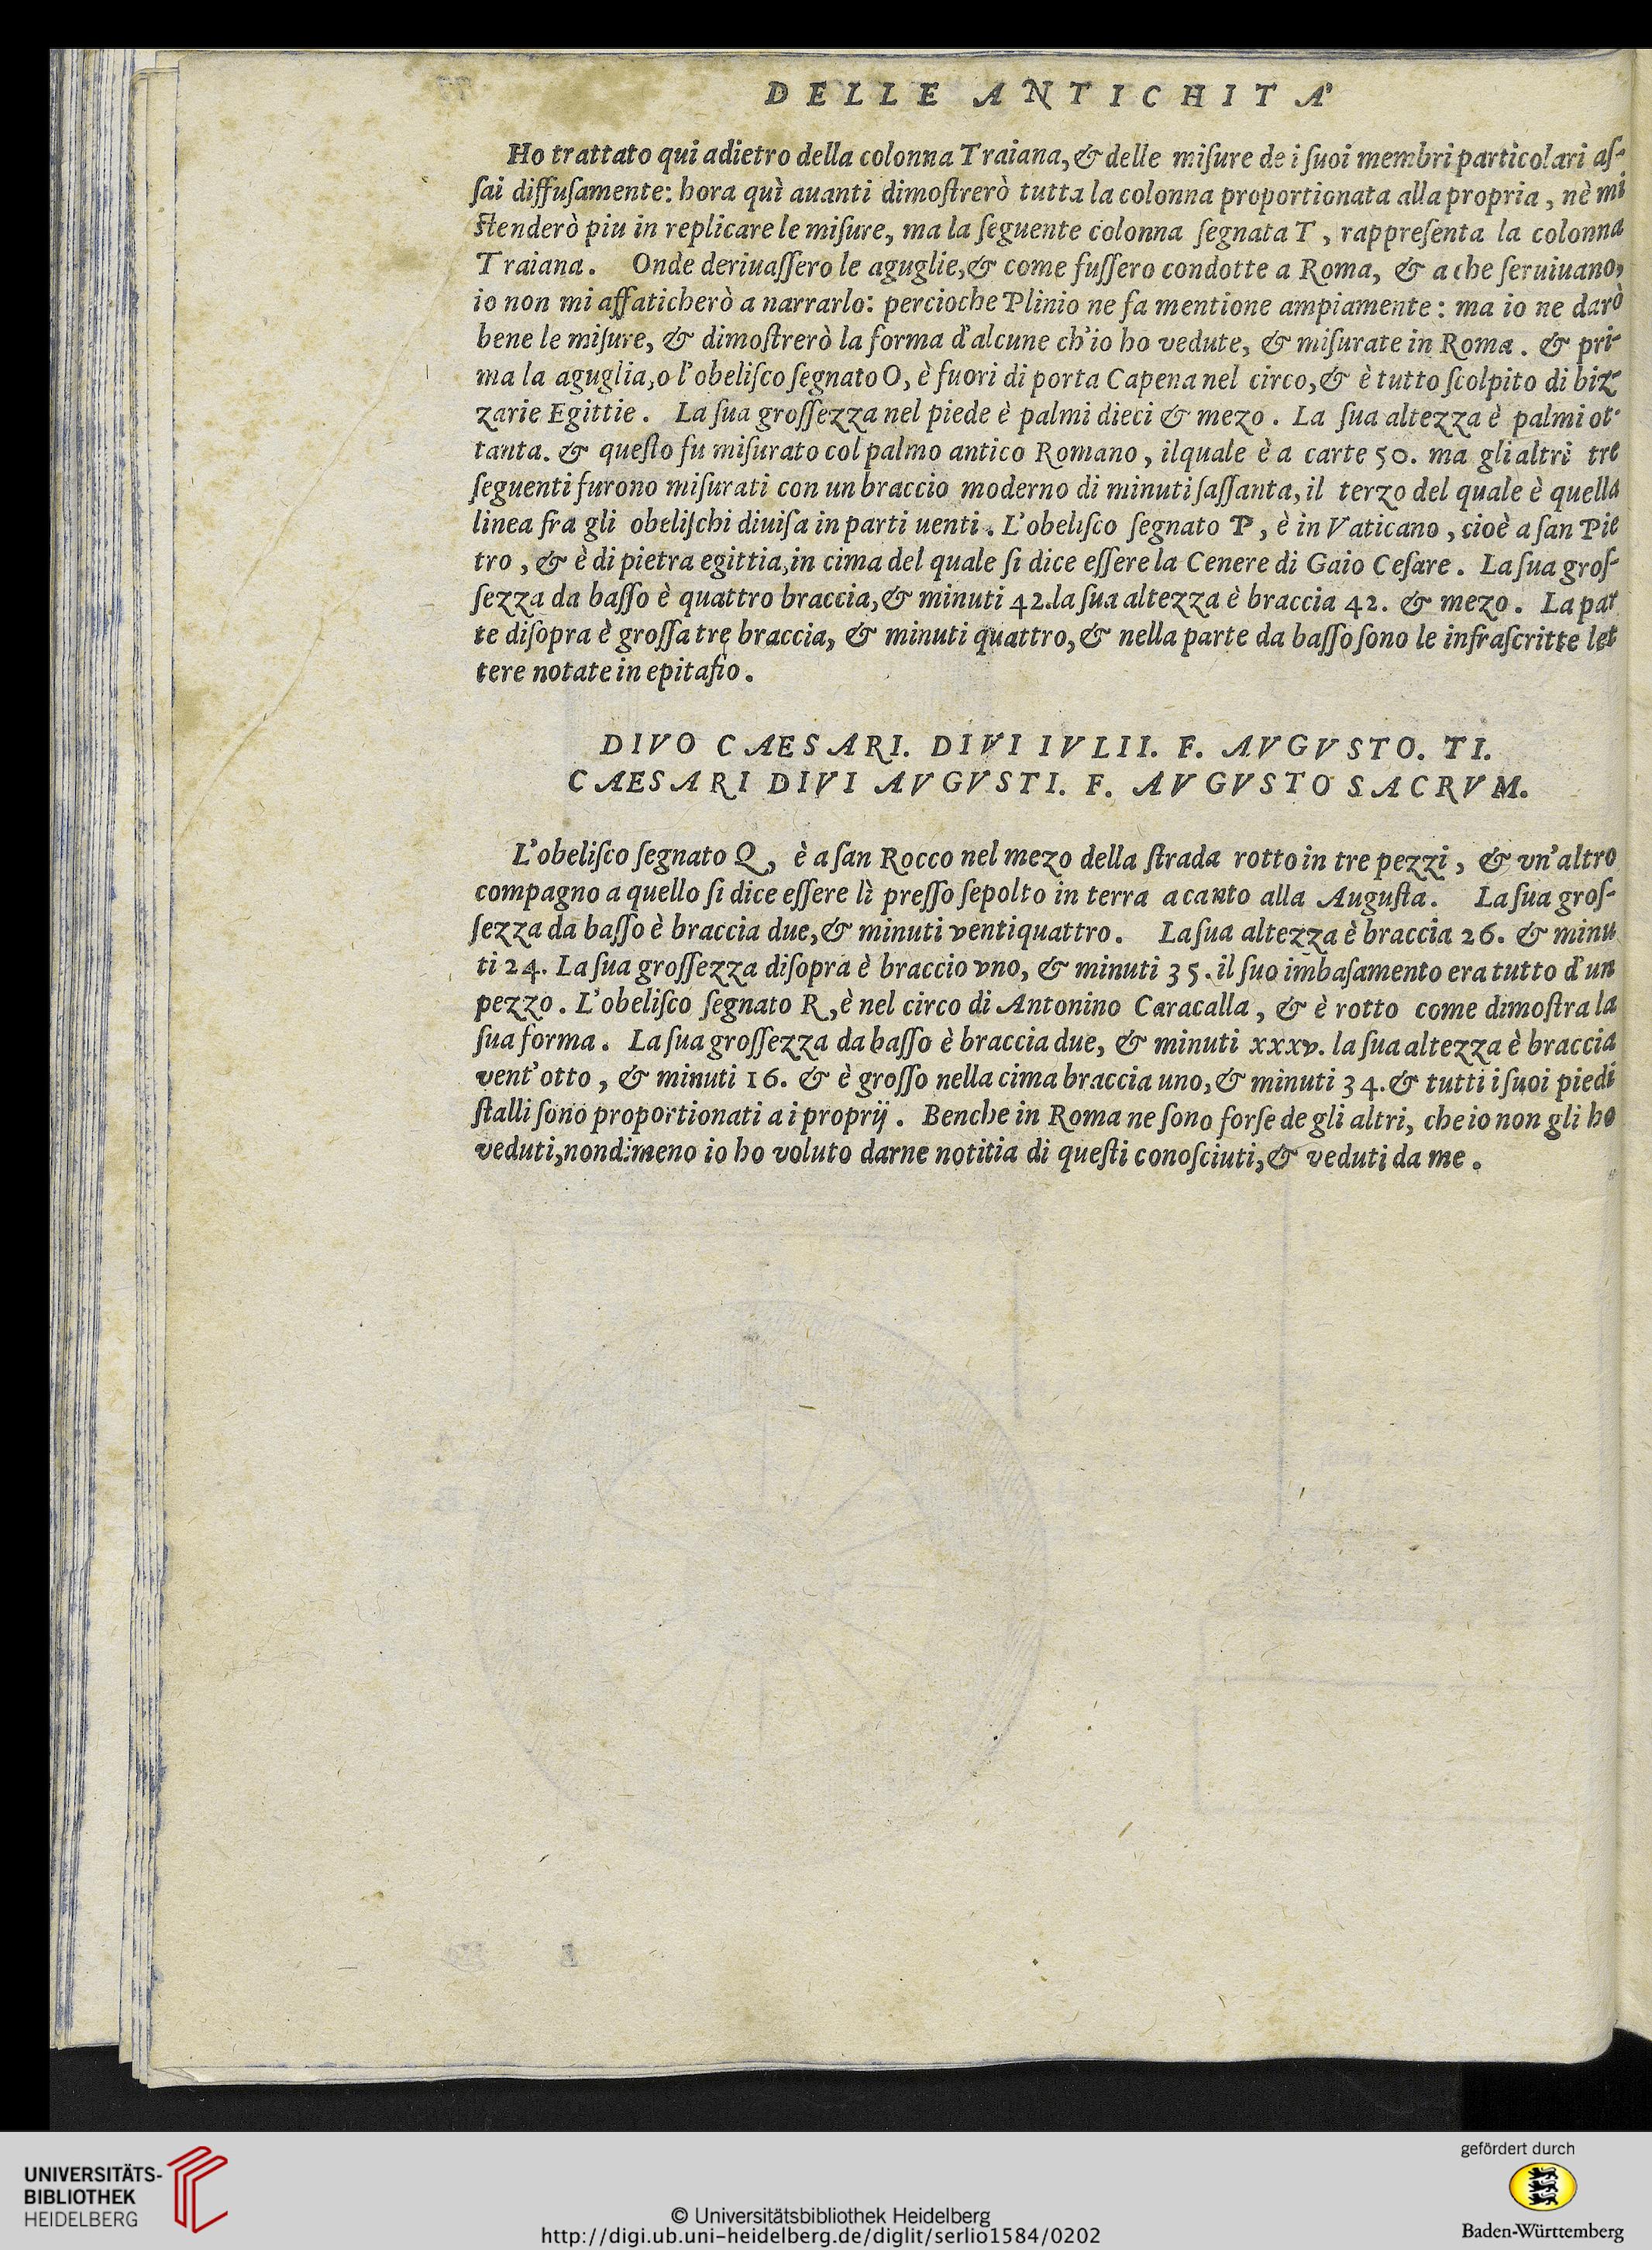 DELLE ANTICHITA'
Ho trattato qui adietro della colonna Traiana, & delle miſure de i ſuoi membri particolari aſ-
ſai diffuſamente: hora quì auanti dimoſtrerò tutta la colonna proportionata alla propria, nè mi
ſtenderò piu in replicare le miſure, ma la ſeguente colonna ſegnata T, rappreſenta la colonna
Traiana. Onde deriuaſſero le aguglie, & come fuſſero condotte a Roma, & a che ſeruiuano,
io non mi affaticherò a narrarlo: percioche Plinio ne fa mentione ampiamente: ma io ne darò
bene le miſure, & dimoſtrerò la forma d'alcune ch'io ho vedute, & miſurate in Roma. & pri-
ma la aguglia, o l'obeliſco ſegnato O, è fuori di porta Capena nel circo, & è tutto ſcolpito di biz-
zarie Egittie. La ſua groſſezza nel piede è palmi dieci & mezo. La ſua altezza è palmi ot-
tanta. & queſto fu miſurato col palmo antico Romano, ilquale è a carte 50. ma gli altri tre
ſeguenti furono miſurati con un braccio moderno di minuti ſaſſanta, il terzo del quale è quella
linea fra gli obeliſchi diuiſa in parti uenti. L'obeliſco ſegnato P, è in Vaticano, cioè a ſan Pie
tro, & è di pietra egittia, in cima del quale ſi dice eſſere la Cenere di Gaio Ceſare. La ſua groſ-
ſezza da baſſo è quattro braccia, & minuti 42. la ſua altezza è braccia 42. & mezo. La par
te diſopra è groſſa tre braccia, & minuti quattro, & nella parte da baſſo ſono le infraſcritte let
tere notate in epitafio.
DIVO CAESARI. DIVI IVLII. F. AVGVSTO. TI.
CAESARI DIVI AVGVSTI. F. AVGVSTO SACRVM.
L'obeliſco ſegnato Q, è a ſan Rocco nel mezo della ſtrada rotto in tre pezzi, & vn'altro
compagno a quello ſi dice eſſere lì preſſo ſepolto in terra a canto alla Auguſta. La ſua groſ-
ſezza da baſſo è braccia due, & minuti ventiquattro. La ſua altezza è braccia 26. & minu
ti 24. La ſua groſſezza diſopra è braccio vno, & minuti 35. il ſuo imbaſamento era tutto d'un
pezzo. L'obeliſco ſegnato R, è nel circo di Antonino Caracalla, & è rotto come dimoſtra la
ſua forma. La ſua groſſezza da baſſo è braccia due, & minuti xxxv. la ſua altezza è braccia
vent'otto, & minuti 16. & è groſſo nella cima braccia uno, & minuti 34. & tutti i ſuoi piedi
ſtalli ſono proportionati a i proprij. Benche in Roma ne ſono forſe de gli altri, che io non gli ho
veduti, nondimeno io ho voluto darne notitia di queſti conoſciuti, & veduti da me.
UNIVERSITÄTS-
BIBLIOTHEK
HEIDELBERG
© Universitätsbibliothek Heidelberg
http://digi.ub.uni-heidelberg.de/diglit/serlio1584/0202
gefördert durch
Baden-Württemberg